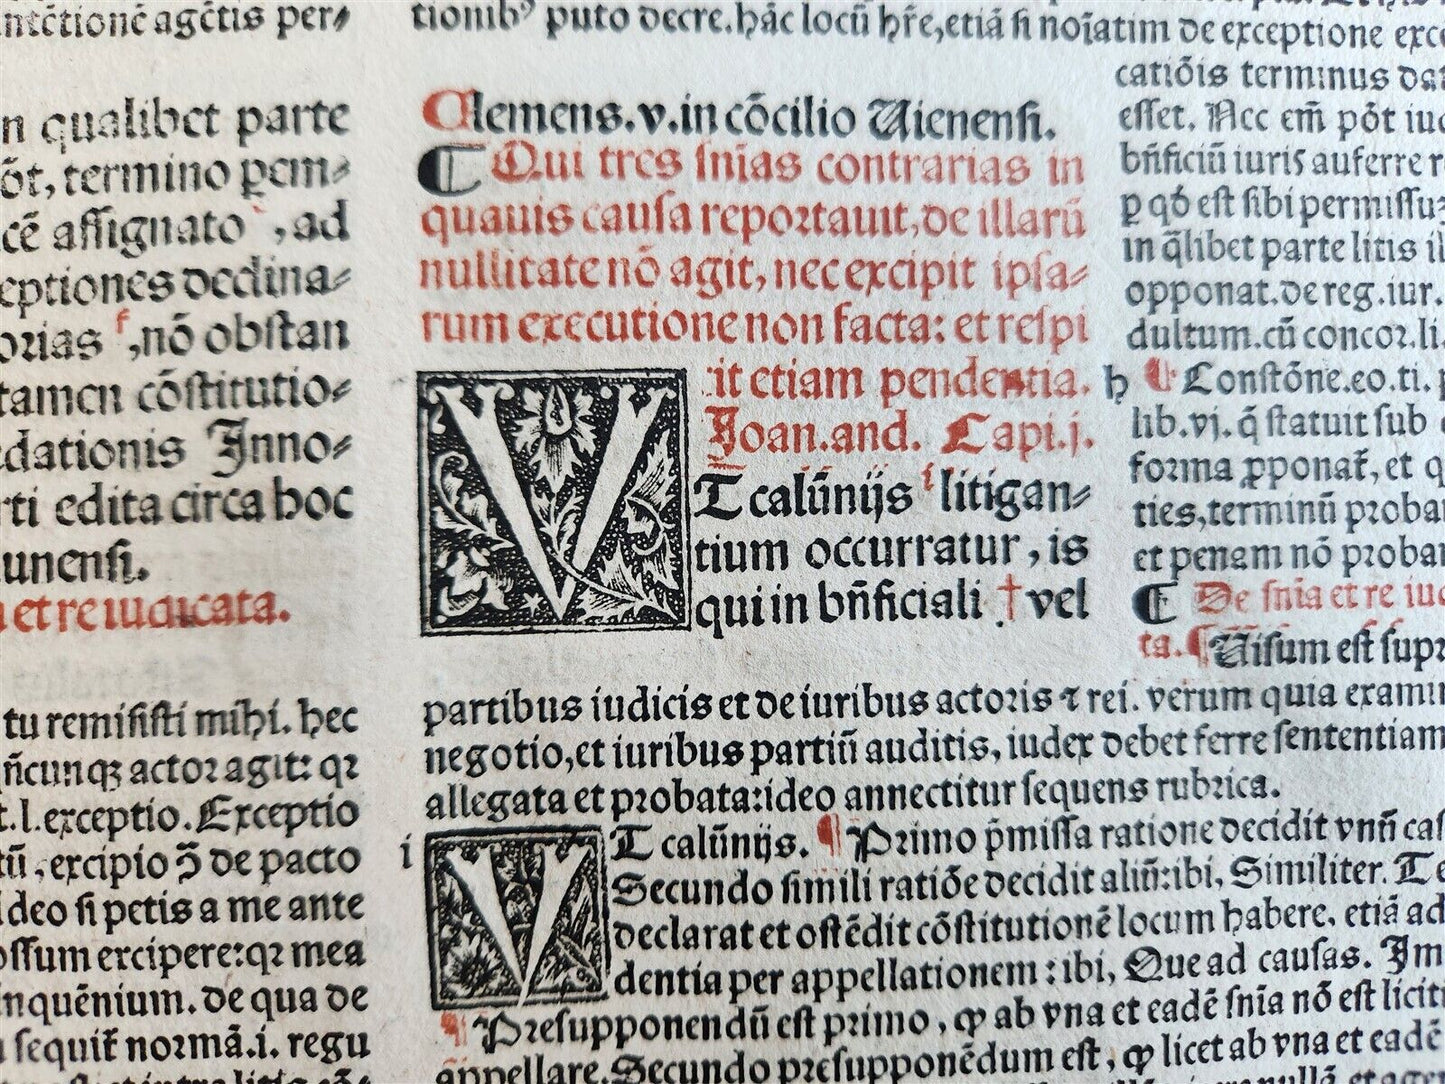 intẽtionẽ agẽtis per⸗
n qualibet parte
õt, termino ꝑem⸗
cẽ aſſignato , ad
ceptiones declina⸗
orias f , nõ obſtan
tamen cõſtitutio⸗
edationis Inno⸗
rti edita circa hoc
unenſi.
et re iudicata.
tu remiſiſti mihi. hec
ñcunqꝫ actor agit: qꝛ
t.l.exceptio. Exceptio
tũ, excipio ꝯ̃ de pacto
ideo ſi petis a me ante
oſſum excipere: qꝛ mea
inquẽnium. de qua de
ſequit̃ normã.i. regu
tionibꝰ puto decre. hãc locũ hr̃e, etiã ſi noĩatim de exceptione exce
Clemens. v. in cõcilio Uienenſi.
¶ Qui tres ſnĩas contrarias in
quauis cauſa reportauit, de illarũ
nullitate nõ agit, nec excipit ipſa⸗
rum executione non facta: et reſpi
:it etiam pendentia.
Joan. and. Capi. j.
VT calũnijs i litigan⸗
tium occurratur, is
qui in bñficiali † vel
partibus iudicis et de iuribus actoris ⁊ rei. verum quia exami
negotio, et iuribus partiũ auditis, iudex debet ferre ſententiam
allegata et probata: ideo annectitur ſequens rubrica.
i VT calũnijs. ¶ Primo p̃miſſa ratione decidit vnũ caſ
Secundo ſimili ratiõe decidit aliũ: ibi, Similiter. Te
declarat et oſtẽdit cõſtitutionẽ locum habere, etiã ad
dentia per appellationem: ibi, Que ad cauſas. Im
¶ Preſupponendũ eſt primo, ꝙ ab vna et eadẽ ſnĩa nõ eſt licit
appellare. Secundo preſupponẽdum eſt, ꝙ licet ab vna et eadẽ
catiõis terminus da
eſſet. Nec em̃ põt iud
bñficiũ iuris auferre r
ꝑ qð eſt ſibi permiſſuꝫ
in q̃libet parte litis il
opponat. de reg. iur.
dultum. cũ concor. li.
h ¶ Conſtõne. eo. ti. p
lib. vj. q̃ ſtatuit ſub
forma ꝓponat̃, et q
ties, terminũ proba
et penam nõ proba
¶ De ſnĩa et re iud
ta. ¶ Uiſum eſt ſupr